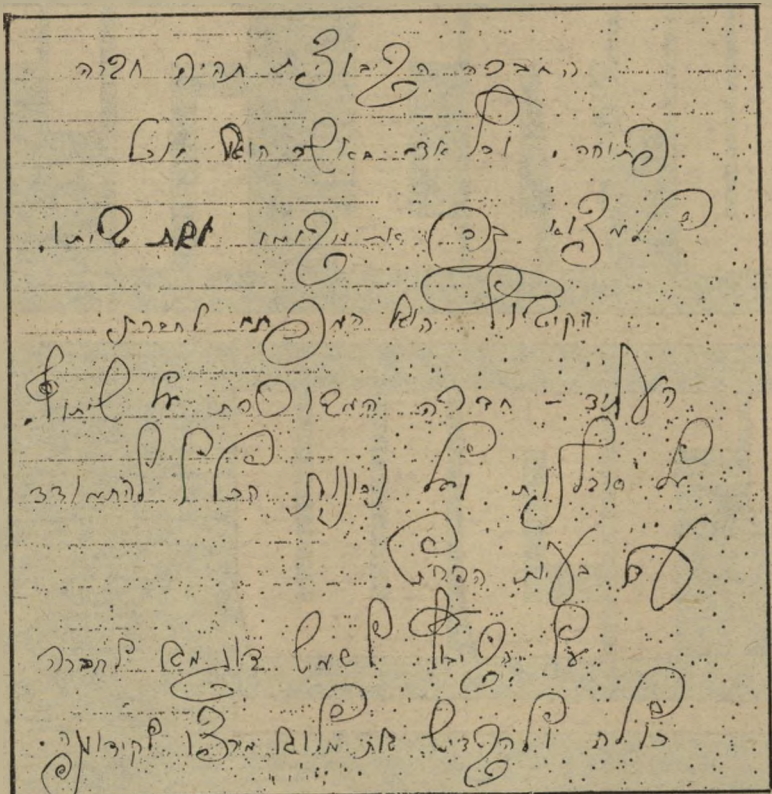 החברה הקיבוצית תהיה חברה
פתוחה. וכל אדם באשר הוא יוכל
למצוא בה את מקומו ואת שיתו.
הקיבוץ הוא המפתח לחברת
העתיד - חברה המבוססת על שיתוף,
על סובלנות ועל נכונות הכלל להתמודד
עם בעיות הפרט.
על הקיבוץ לשמש דוגמא לחברה
כולה ולהקדיש את מלוא מרצו לקידומה.